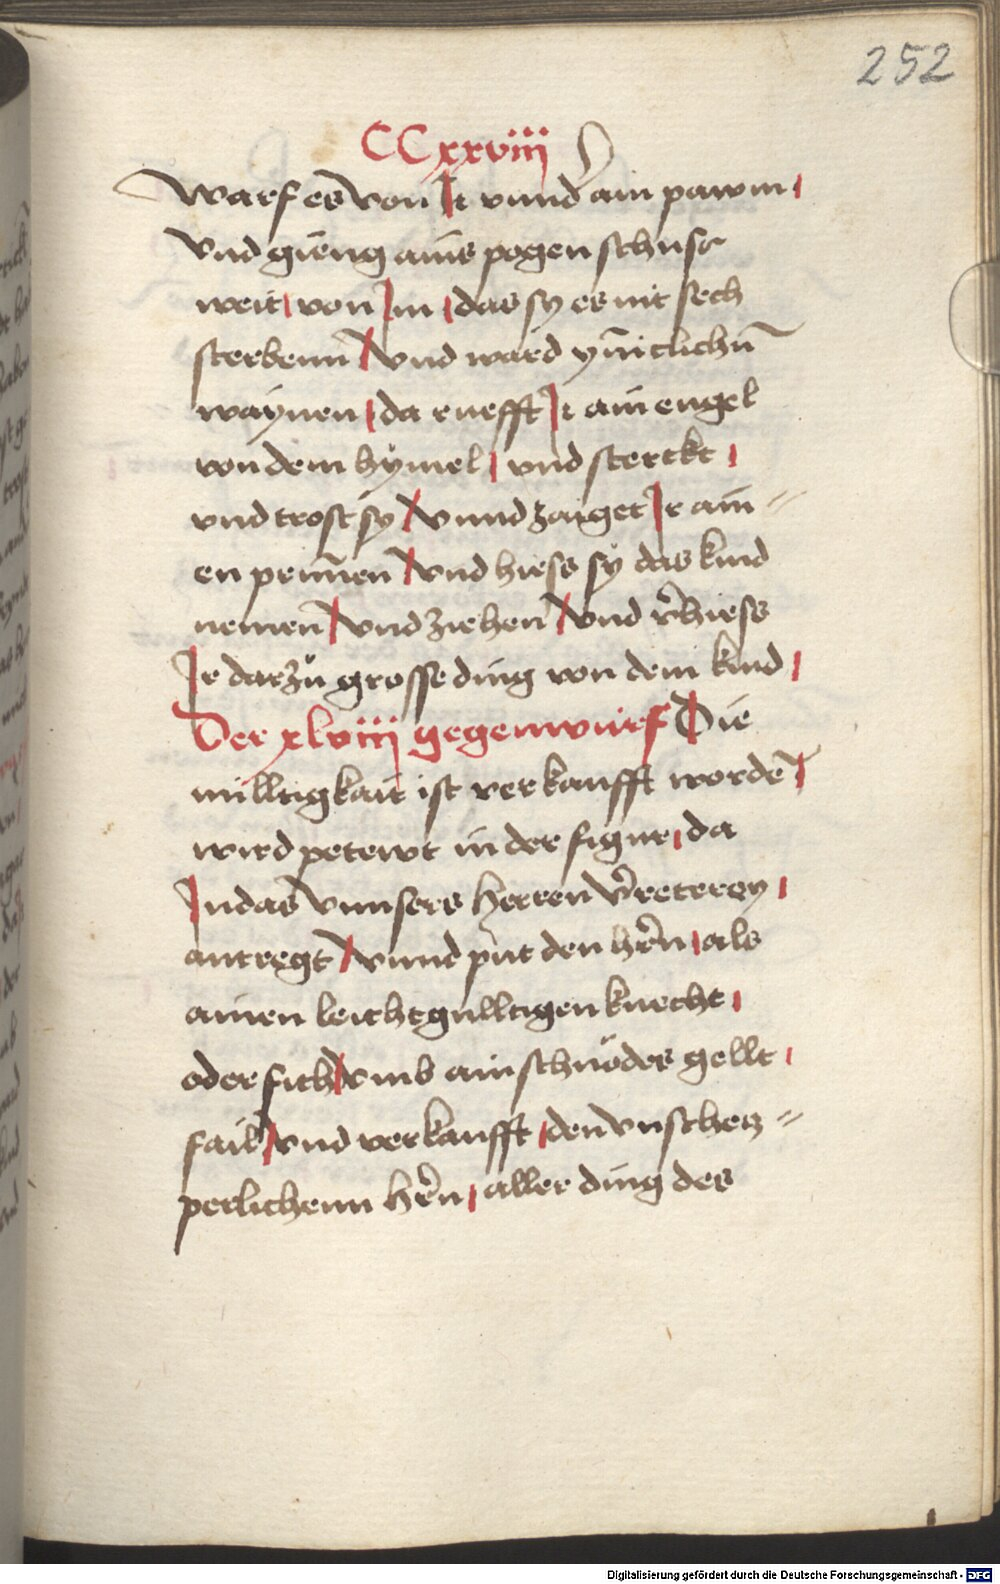 252
CCxxviii
warf es von Ir vnnd ain pawm
vnd gieng ains pogen schuss
weit von Im das sy es nit sech
sterbenn vnd ward ynnitlichn̄
waÿnen da ruefft Ir ain engel
von dem hÿmel vnd sterckt
vnd trost sy vnnd zaiget Ir ain=
en prunnen vnd hiess sÿ das kind
nemen vnd ziehen vnd v̄hiess
Ir darzu̇ grosse ding von dem kind
Der xlviiij gegenwurf Die
milltigkait ist verkaufft wordē
wird petewt in der figur da
Iudas vnnsers herren v̄reterey
antregt vnnd put den hrn̄ als
ainen leichtgulltigen knecht
oder fich vmb ain schnödes gellt
fail vnd verkaufft den vnschetz=
perlichenn hrn̄ aller ding des
Digitalisierung gefördert durch die Deutsche Forschungsgemeinschaft - DFG